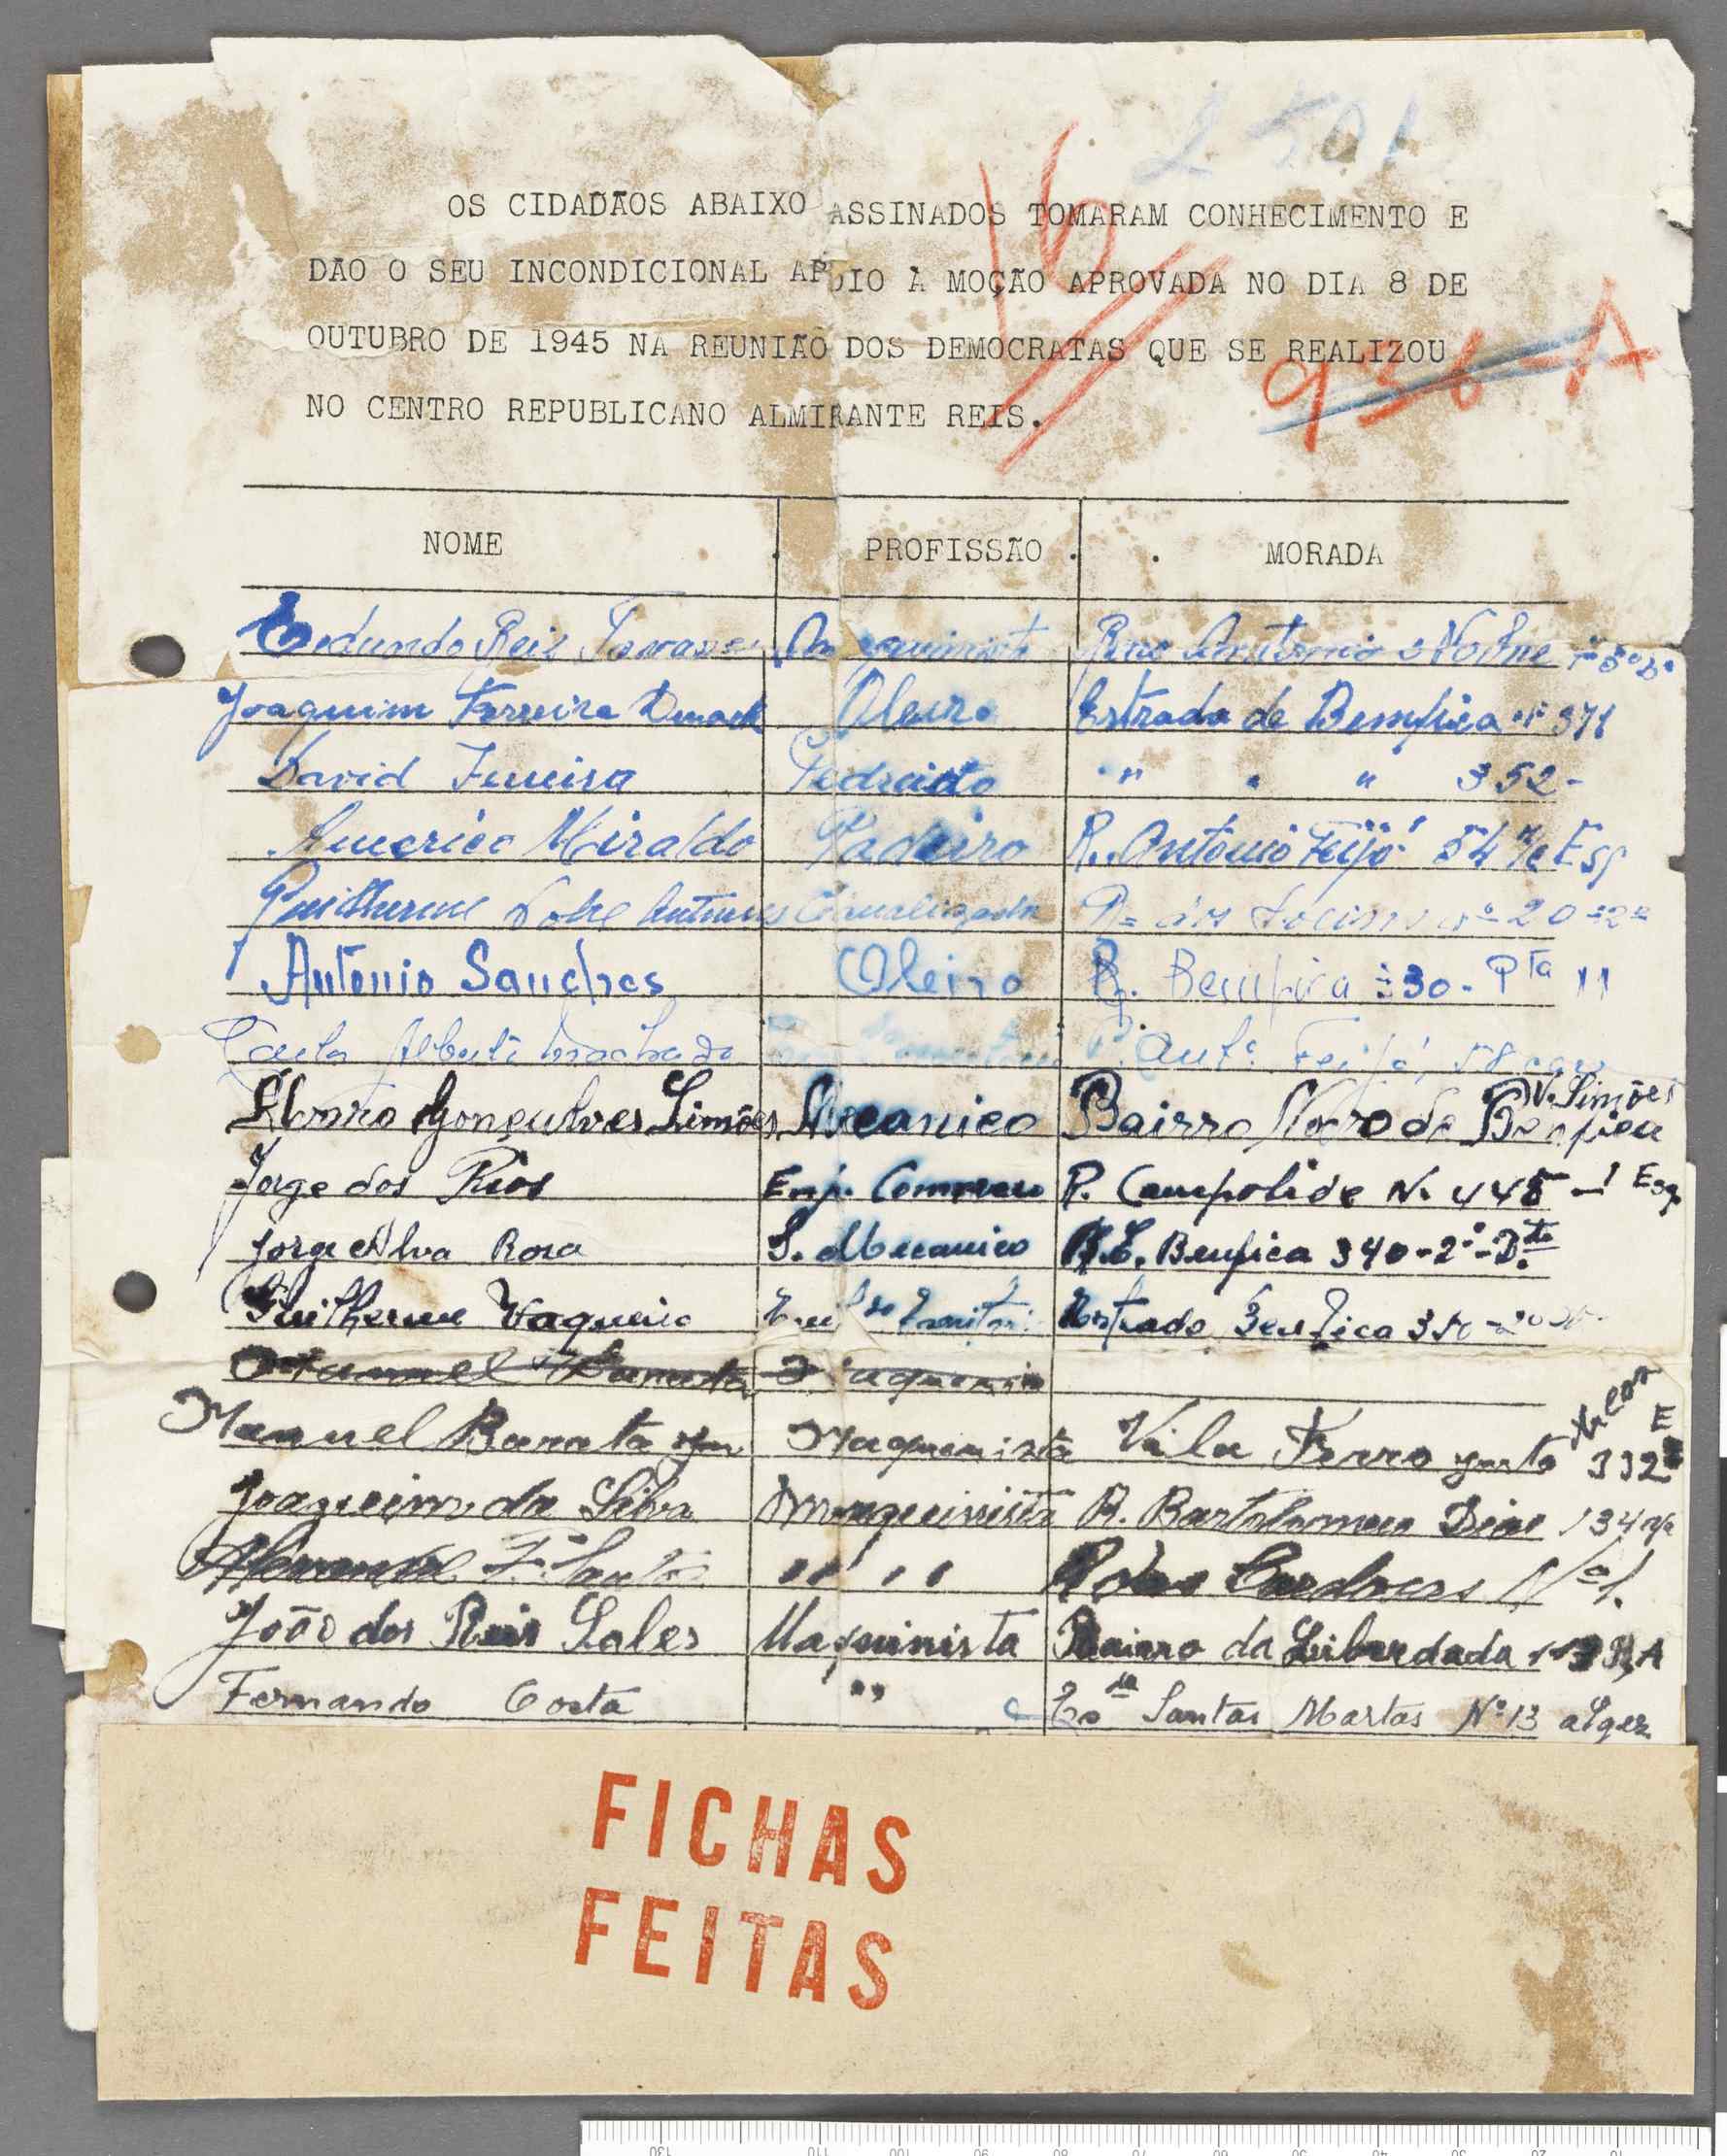 2501
16
OS CIDADÃOS ABAIXO ASSINADOS TOMARAM CONHECIMENTO E
DÃO O SEU INCONDICIONAL APOIO À MOÇÃO APROVADA NO DIA 8 DE
OUTUBRO DE 1945 NA REUNIÃO DOS DEMOCRATAS QUE SE REALIZOU
936-A
NO CENTRO REPUBLICANO ALMIRANTE REIS.
NOME PROFISSÃO MORADA
Edundo Reis Rua Antonio Nobre
Joaquim Ferreira Oleiro Estrada de Bemfica nº 371
David Ferreira " " " 352-
Americo Miraldo Padeiro R. Antonio Feijó 54 Esq
Guilherme Antunes Canalizador nº 20-2º
Antonio Sanches Oleiro Bemfica 330 - Pta 11
Alberto Machado R. Antº Feijó, 58
Alvaro Gonçalves Simões Mecanico Bairro Novo de Benfica
N. Simões
Jorge dos Rios R. Campolide N. 445 - 1 Esq
Jorge Alva Rosa S. Mecanico E. Benfica 340-2º-Dto
Guilherme Vaqueiro Estrada Benfica 350
Manuel Barata
Manuel Barata Maquinista Vila Ferro junto 332
E
Joaquim da Silva Maquinista R. Bartolomeu Dias 134
F. Santos " " Nº 1.
João dos Reis Sales Maquinista Bairro da Liberdada
Fernando Costa " Santas Martas Nº 13 alges
FICHAS
FEITAS